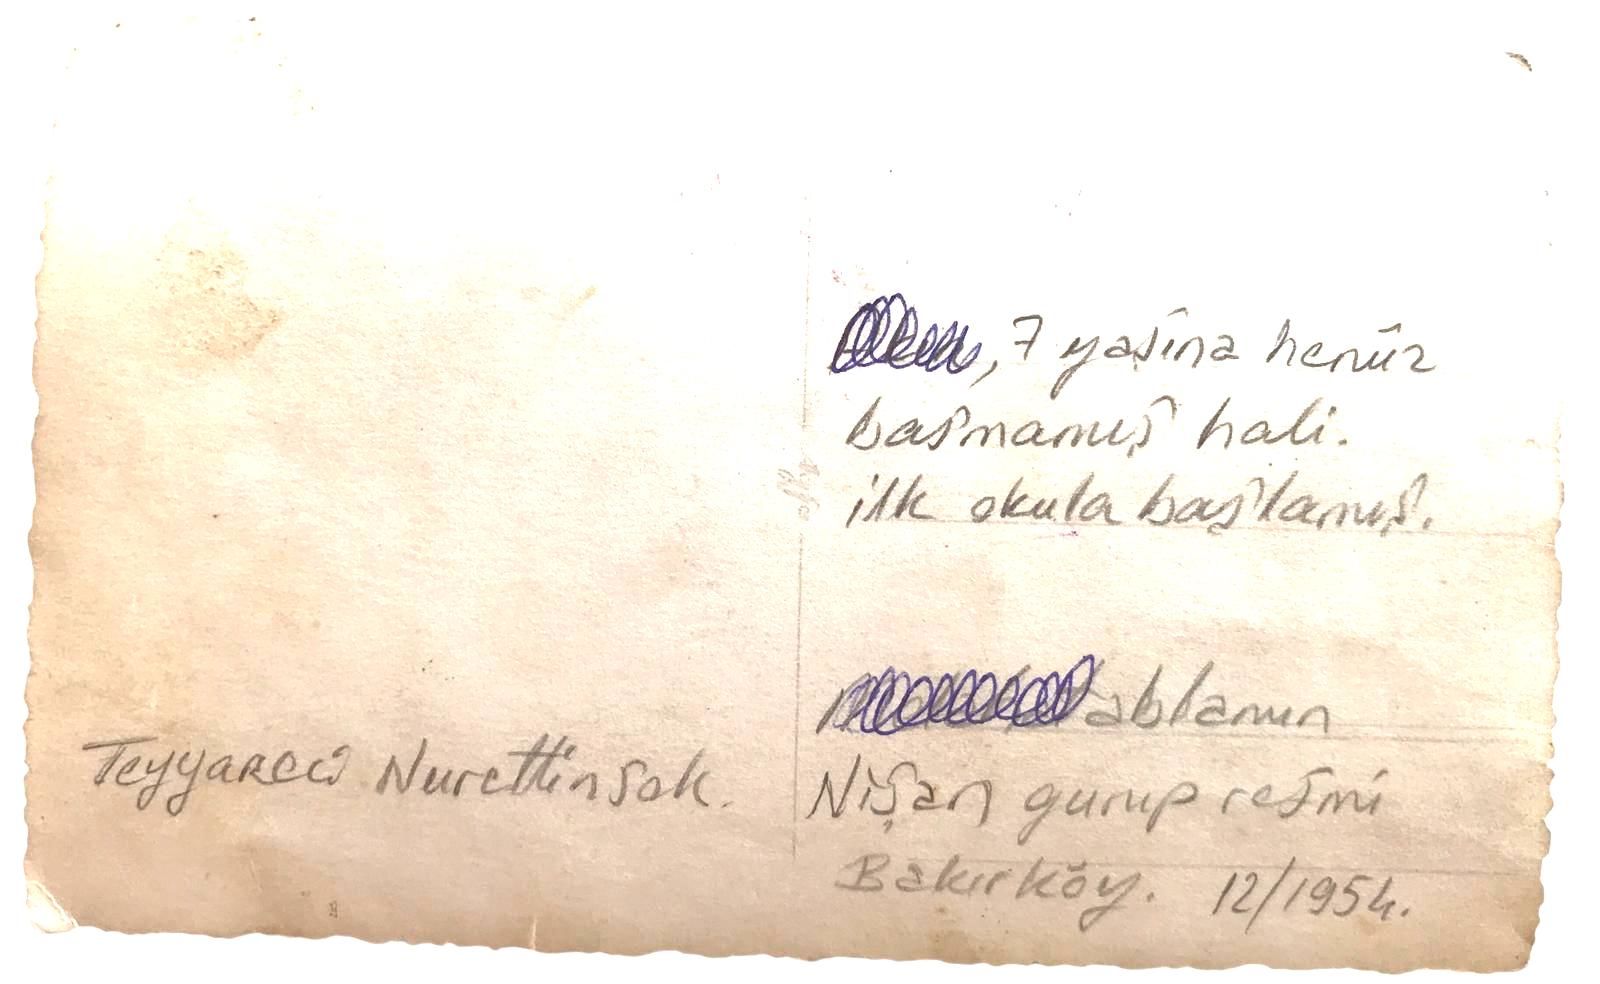 , 7 yaşına henüz
basmamış hali.
ilk okula başlamış.
ablanın
Nişan gurup resmi
Bakırköy. 12/1954.
Teyyareci Nurettin Sok.